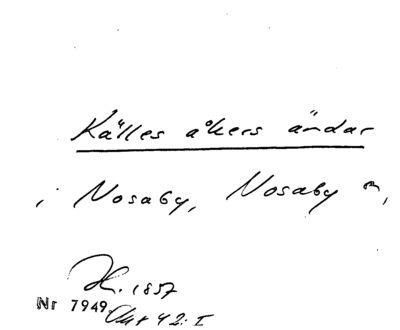 Källes åkers ändar
i Nosaby, Nosaby sn,
H. 1857
Nr 7949
Akt 42: I